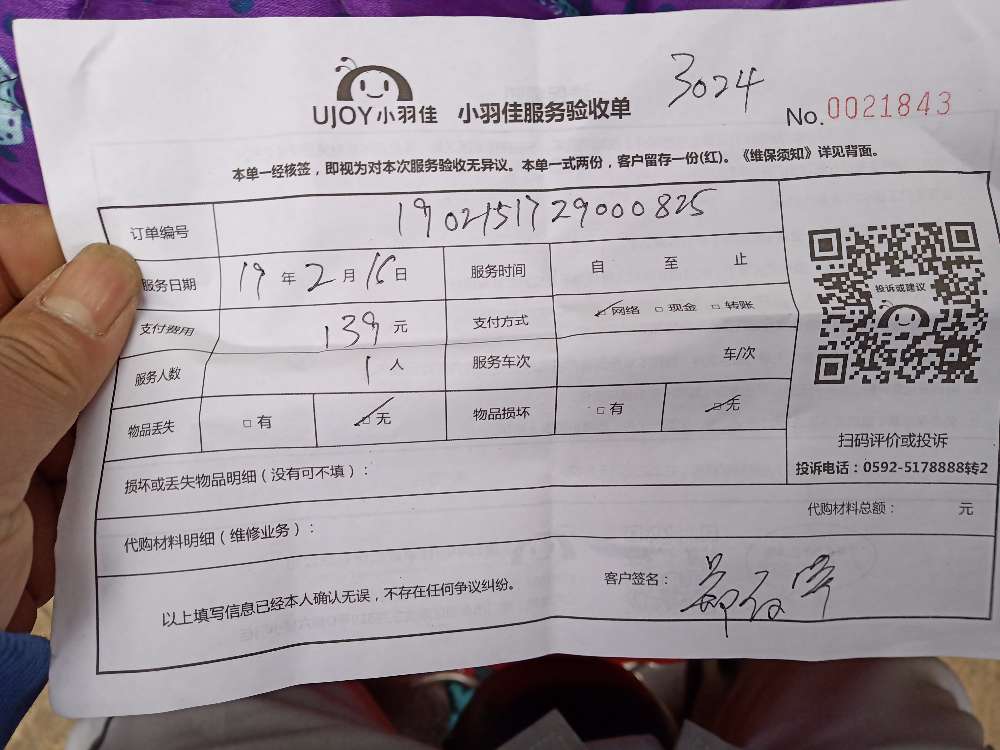 3024
UJOY小羽佳 小羽佳服务验收单 No.0021843
本单一经核签，即视为对本次服务验收无异议。本单一式两份，客户留存一份(红)。《维保须知》详见背面。
订单编号 1902151729000825
服务日期 19年2月16日 服务时间 自 至 止
支付费用 139元 支付方式 ☑网络 □现金 □转账
服务人数 1人 服务车次 车/次
物品丢失 □有 ☑无 物品损坏 □有 ☑无
投诉或建议
扫码评价或投诉
投诉电话：0592-5178888转2
损坏或丢失物品明细（没有可不填）：
代购材料明细（维修业务）： 代购材料总额： 元
以上填写信息已经本人确认无误，不存在任何争议纠纷。 客户签名：